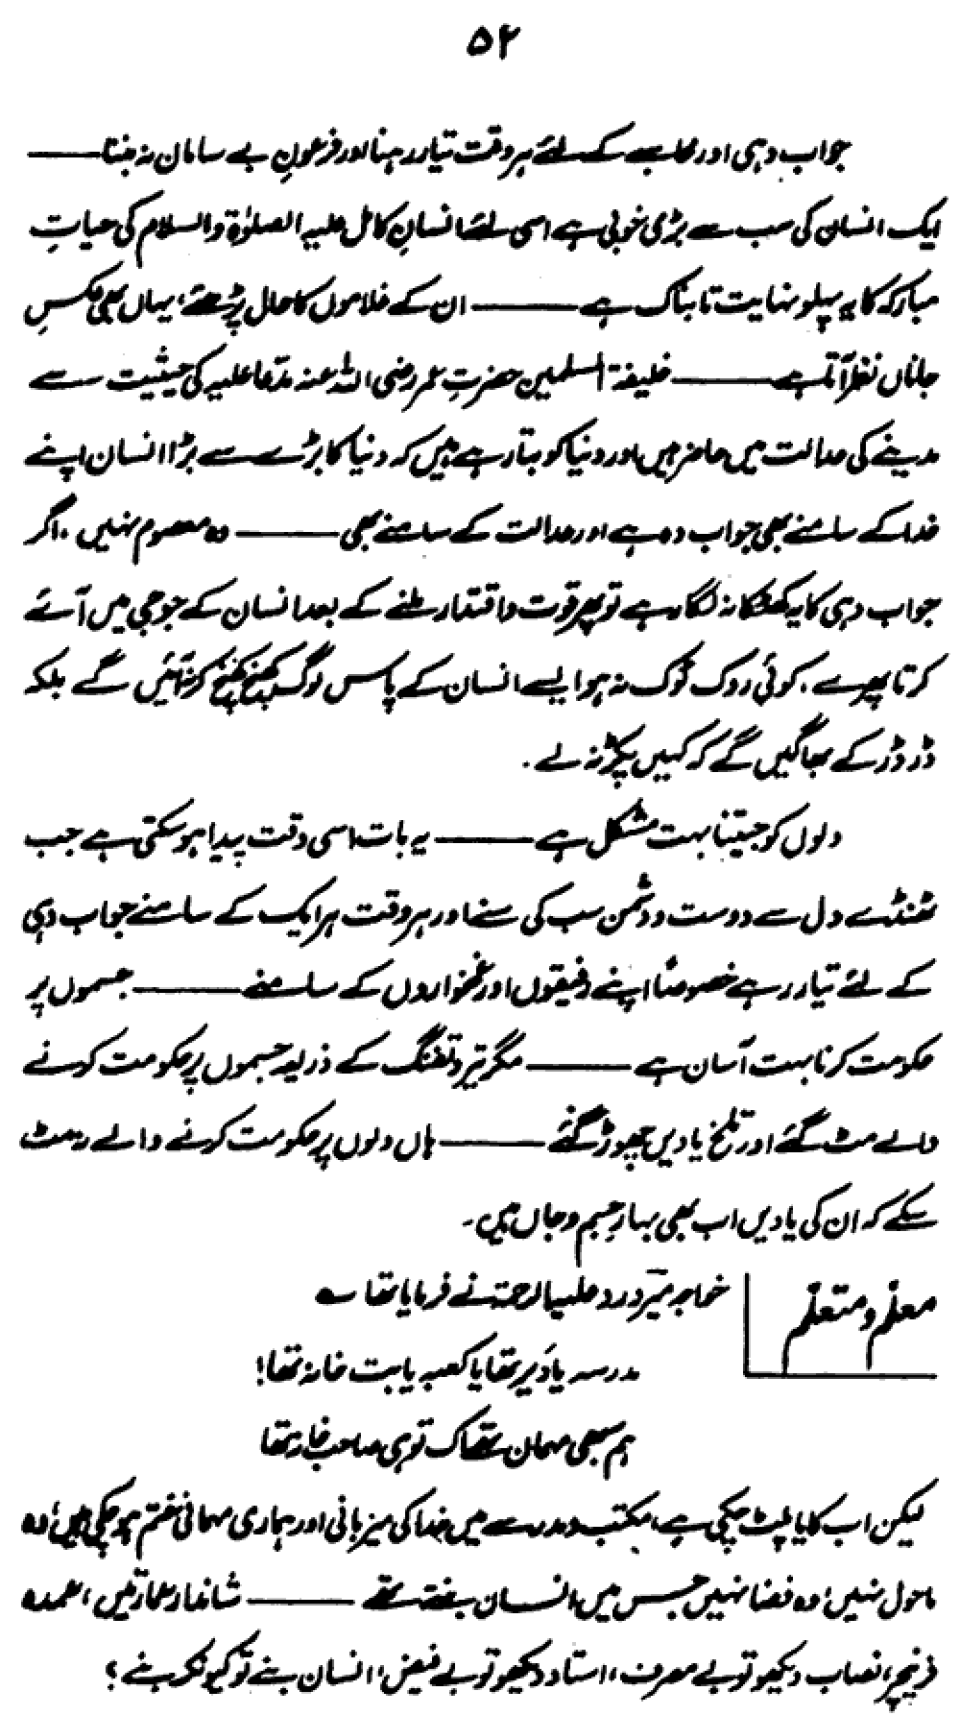 ۵۲
جواب دہی اور محاسبے کے لئے ہر وقت تیار رہنا اور فرعونِ بے سامان نہ بننا ——
ایک انسان کی سب سے بڑی خوبی ہے اسی لئے انسانِ کامل علیہ الصلوٰۃ والسلام کی حیاتِ
مبارکہ کا یہ پہلو نہایت تابناک ہے —— ان کے غلاموں کا حال پڑھئے، یہاں بھی عکسِ
جاناں نظر آتا ہے —— خلیفۃ المسلمین حضرتِ عمر رضی اللہ عنہ مدّعا علیہ کی حیثیت سے
مدینے کی عدالت میں حاضر ہیں اور دنیا کو بتا رہے ہیں کہ دنیا کا بڑے سے بڑا انسان اپنے
خدا کے سامنے بھی جواب دہ ہے اور عدالت کے سامنے بھی —— وہ معصوم نہیں، اگر
جواب دہی کا یہ کھٹکا نہ لگا رہے تو پھر قوت و اقتدار ملنے کے بعد انسان کے جو جی میں آئے
کرتا پھرے، کوئی روک ٹوک نہ ہو ایسے انسان کے پاس لوگ کھنچ کھنچ کر نہ آئیں گے بلکہ
ڈر ڈر کے بھاگیں گے کہ کہیں پکڑ نہ لے۔
دلوں کو جیتنا بہت مشکل ہے —— یہ بات اسی وقت پیدا ہو سکتی ہے جب
ٹھنڈے دل سے دوست و دشمن سب کی سنے اور ہر وقت ہر ایک کے سامنے جواب دہی
کے لئے تیار رہے خصوصاً اپنے رفیقوں اور غمخواروں کے سامنے —— جسموں پر
حکومت کرنا بہت آسان ہے —— مگر تیر و تفنگ کے ذریعہ جسموں پر حکومت کرنے
والے مٹ گئے اور تلخ یادیں چھوڑ گئے —— ہاں دلوں پر حکومت کرنے والے نہ مٹ
سکے کہ ان کی یادیں اب بھی بہارِ جسم و جاں ہیں۔
معلّم و متعلّم
خواجہ میر درد علیہ الرحمۃ نے فرمایا تھا ؎
مدرسہ یا دَیر تھا یا کعبہ یا بت خانہ تھا!
ہم سبھی مہمان تھے اک تو ہی صاحب خانہ تھا
لیکن اب کایا پلٹ چکی ہے، مکتب و مدرسے میں خدا کی میزبانی اور ہماری مہمانی ختم ہو چکی ہیں، وہ
ماحول نہیں، وہ فضا نہیں جس میں انسان بنتے تھے —— شاندار عمارتیں، عمدہ
فرنیچر، نصاب دیکھو تو بے مصرف، استاد دیکھو تو بے فیض، انسان بنے تو کیونکر بنے؟